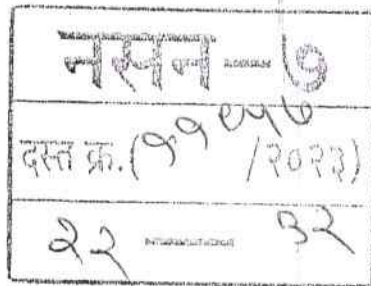 नसन - ७
दस्त क्र.(११७५७ /२०२३)
२२ - ३२